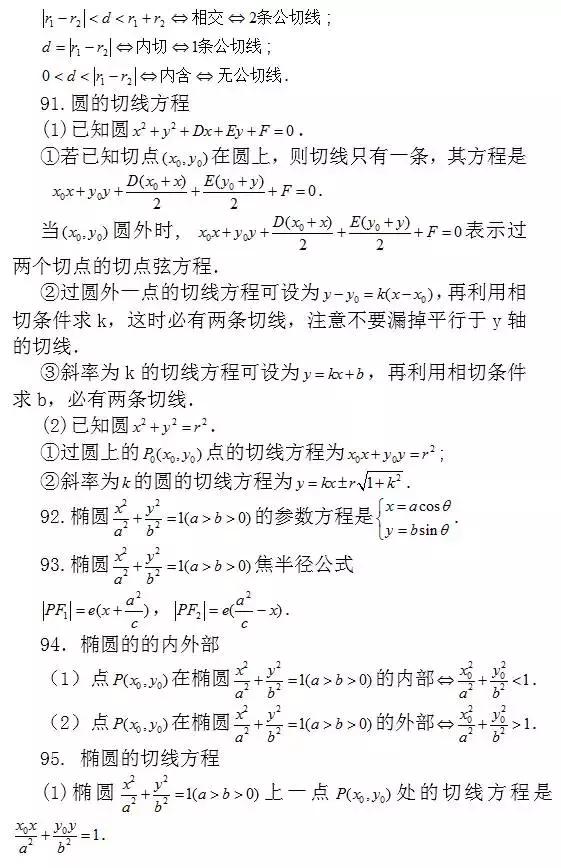 |r₁－r₂|<d<r₁+r₂⇔相交⇔2条公切线；
d=|r₁－r₂|⇔内切⇔1条公切线；
0<d<|r₁－r₂|⇔内含⇔无公切线．
91.圆的切线方程
(1)已知圆x²+y²+Dx+Ey+F=0．
①若已知切点(x₀,y₀)在圆上，则切线只有一条，其方程是
x₀x+y₀y+D(x₀+x)/2+E(y₀+y)/2+F=0.
当(x₀,y₀)圆外时, x₀x+y₀y+D(x₀+x)/2+E(y₀+y)/2+F=0表示过
两个切点的切点弦方程．
②过圆外一点的切线方程可设为y－y₀=k(x－x₀)，再利用相
切条件求k，这时必有两条切线，注意不要漏掉平行于y轴
的切线．
③斜率为k的切线方程可设为y=kx+b，再利用相切条件
求b，必有两条切线．
(2)已知圆x²+y²=r²．
①过圆上的P₀(x₀,y₀)点的切线方程为x₀x+y₀y=r²;
②斜率为k的圆的切线方程为y=kx±r√(1+k²).
92.椭圆x²/a²+y²/b²=1(a>b>0)的参数方程是{x=acosθ y=bsinθ.
93.椭圆x²/a²+y²/b²=1(a>b>0)焦半径公式
|PF₁|=e(x+a²/c)，|PF₂|=e(a²/c－x)．
94．椭圆的的内外部
（1）点P(x₀,y₀)在椭圆x²/a²+y²/b²=1(a>b>0)的内部⇔x₀²/a²+y₀²/b²<1．
（2）点P(x₀,y₀)在椭圆x²/a²+y²/b²=1(a>b>0)的外部⇔x₀²/a²+y₀²/b²>1．
95. 椭圆的切线方程
(1)椭圆x²/a²+y²/b²=1(a>b>0)上一点P(x₀,y₀)处的切线方程是
x₀x/a²+y₀y/b²=1.